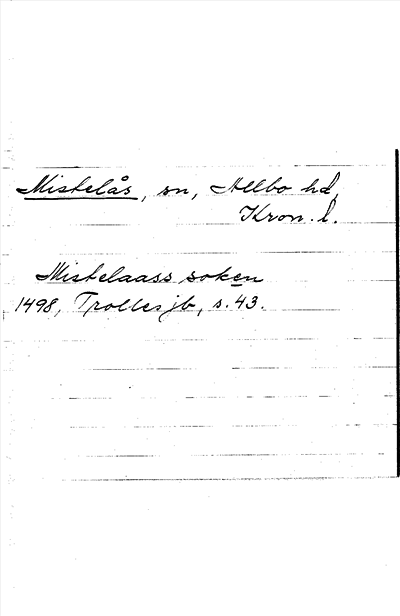 Mistelås, sn, Allbo hd,
Kron. l.
Mistelaass soken
1498, Trolles jb, s. 43.